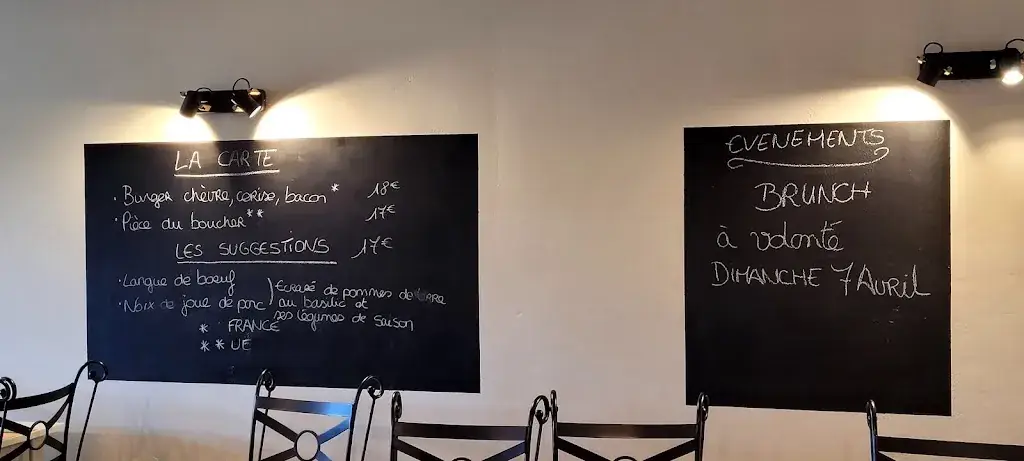 LA CARTE
· Burger chèvre, cerise, bacon* 18€
· Pièce du boucher** 17€
LES SUGGESTIONS 17€
· Langue de boeuf
· Noix de joue de porc
Ecrasé de pommes de terre
au basilic et
ses légumes de saison
* FRANCE
** UE
EVENEMENTS
BRUNCH
à volonté
DIMANCHE 7 Avril